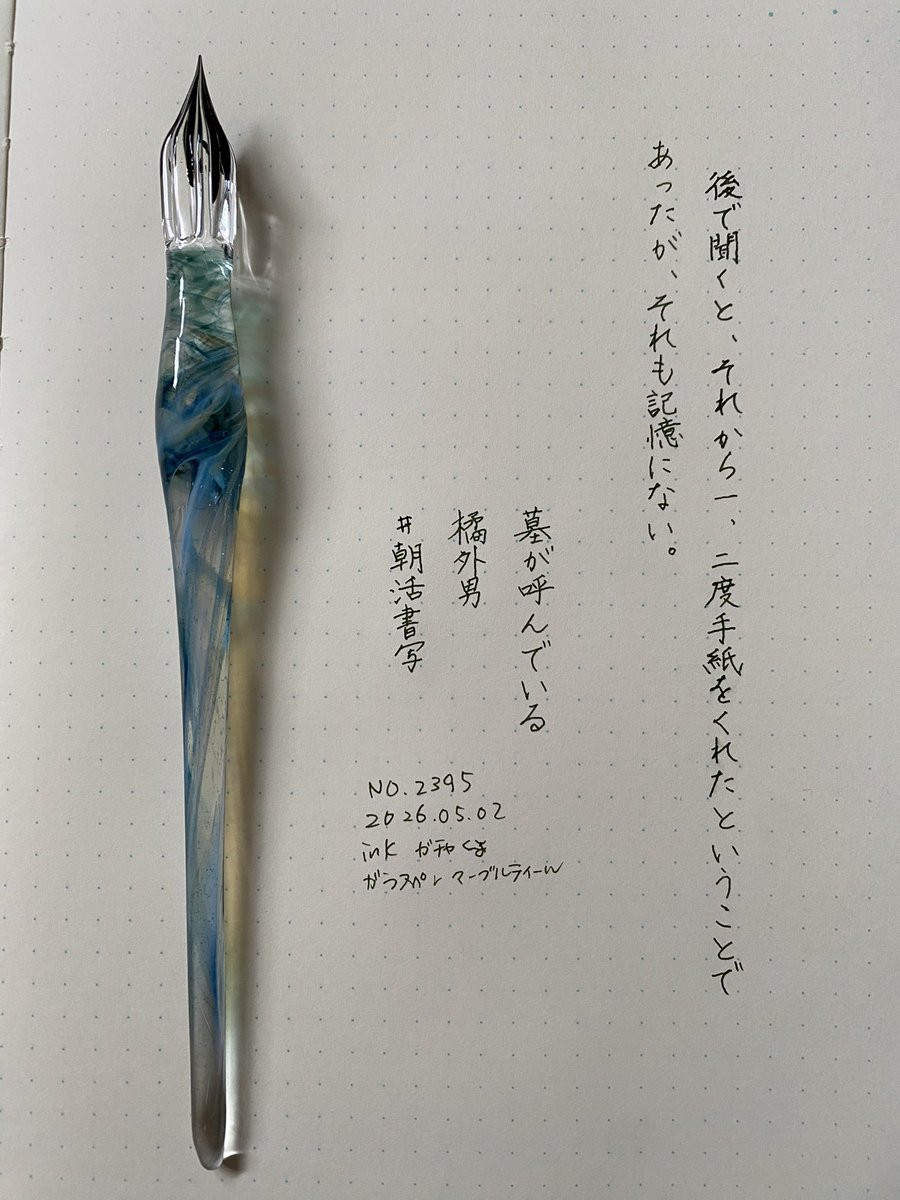 後で聞くと、それから一、二度手紙をくれたということで
あったが、それも記憶にない。
墓が呼んでいる
橘外男
#朝活書写
NO.2395
2026.05.02
ink ガチャくま
ガラスペン マーブルティール